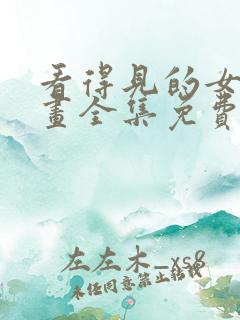 看得見的女
畫全集免費
左左木_xs8
未经同意禁止转载